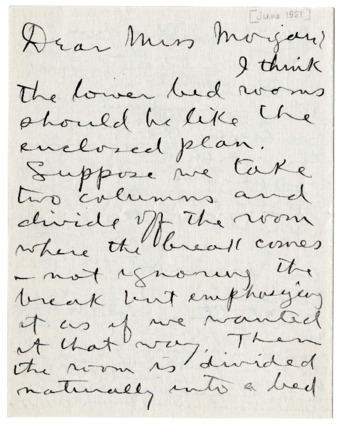 [June 1921]
Dear Miss Morgan,
I think
the lower bed rooms
should be like the
enclosed plan.
Suppose we take
two columns and
divide off the room
where the break comes
– not ignoring the
break but emphasizing
it as if we wanted
it that way. Then
the room is divided
naturally into a bed